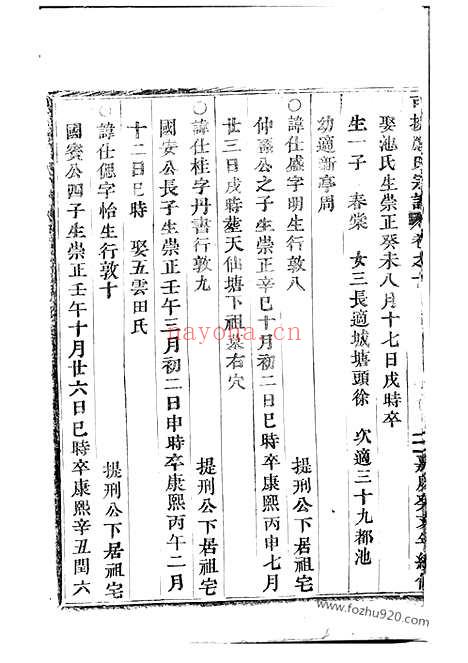 宗譜卷之十
二
嘉慶癸亥年續修
娶池氏生崇正癸未八月十七日戌時卒
生一子 春棠 女三長適城塘頭徐 次適三十九都池
幼適新亭周
○諱仕盛字明生行敦八 提刑公下居祖宅
仲公之子生崇正辛巳十月初二日申時卒康熙丙申七月
廿三日戌時塟天仙塘下祖墓右穴
○諱仕桂字丹書行敦九 提刑公下居祖宅
國安公長子生崇正壬午三月初二日申時卒康熙丙午二月
十二日巳時 娶五雲田氏
○諱仕偲字怡生行敦十 提刑公下居祖宅
國安公四子生崇正壬午十月廿六日巳時卒康熙辛丑閏六
nayona.cn
www.fozhu920.com